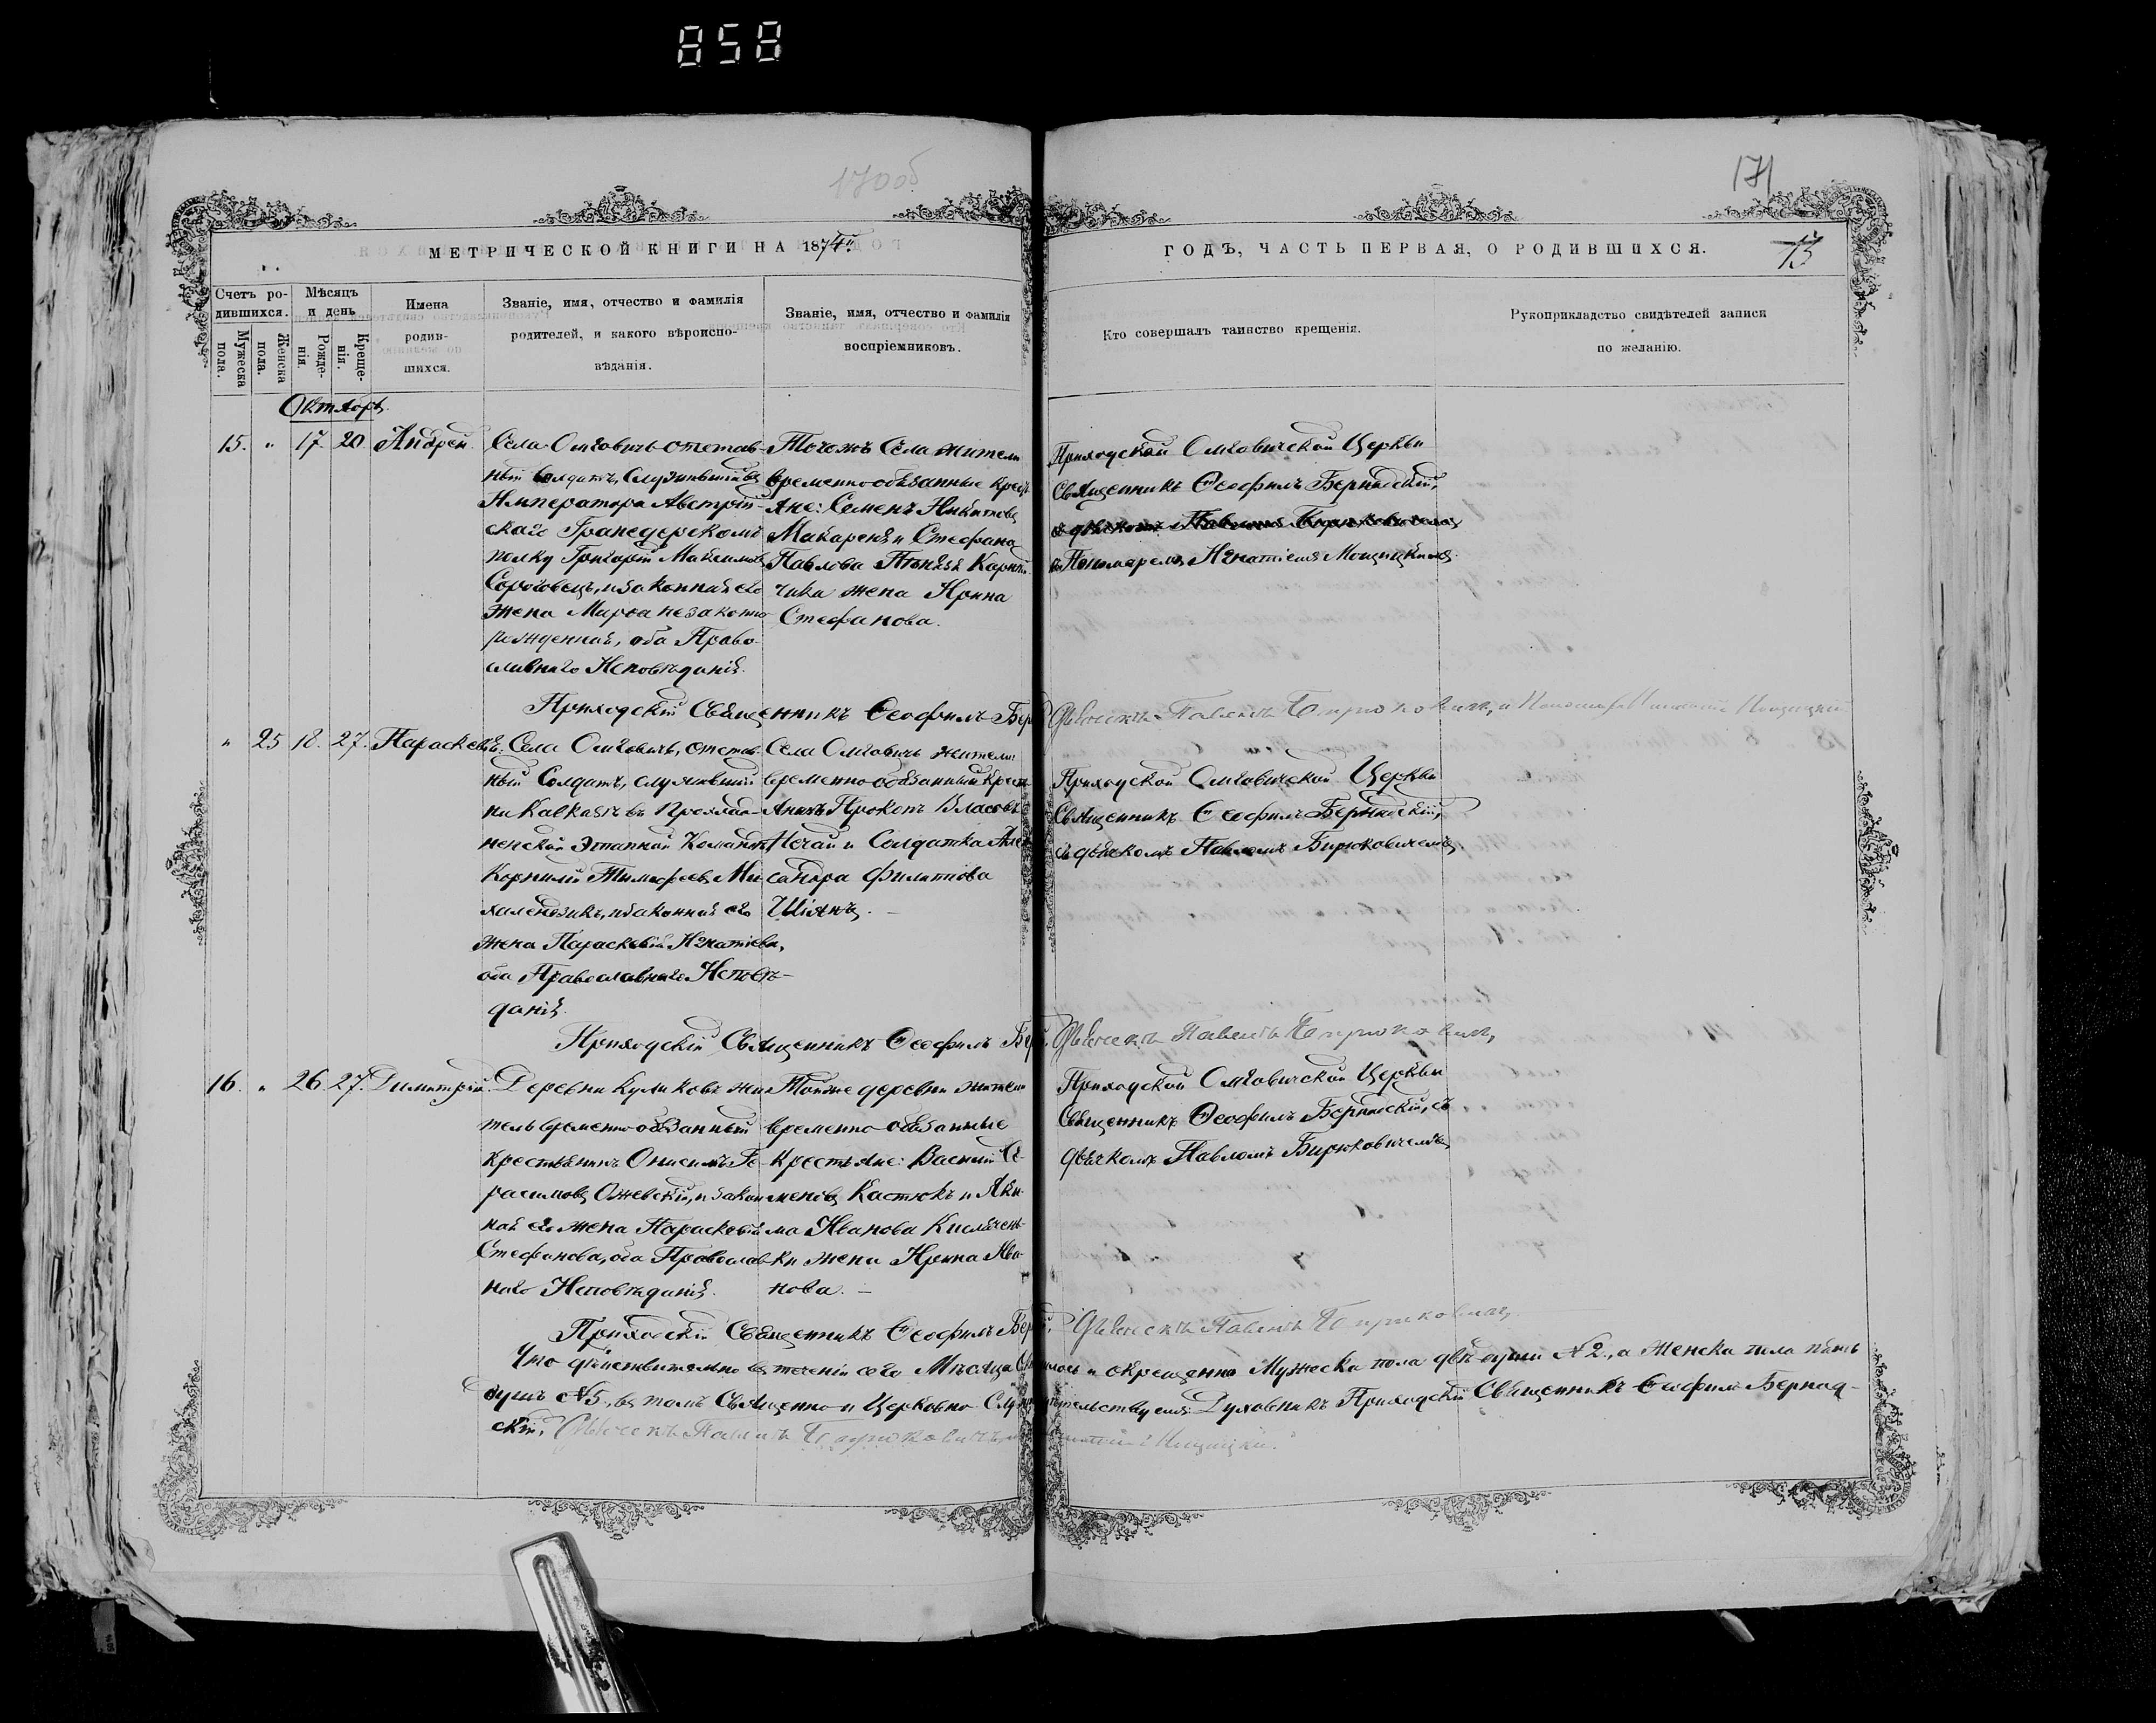 858
170об
171
МЕТРИЧЕСКОЙ КНИГИ НА 1874й
ГОДЪ, ЧАСТЬ ПЕРВАЯ, О РОДИВШИХСЯ.
13
Счетъ ро-
дившихся.
Мужеска
пола.
Женска
пола.
Мѣсяцъ
и день
Рожде-
нія.
Креще-
нія.
Имена
родив-
шихся.
Званіе, имя, отчество и фамилія
родителей, и какого вѣроиспо-
вѣданія.
Званіе, имя, отчество и фамилія
воспріемниковъ.
Кто совершалъ таинство крещенія.
Рукоприкладство свидѣтелей записи
по желанію.
Октябрь
15. " 17. 20. Андрей.
Села Омговичъ отстав-
ный Солдатъ, Служившій въ
Императора Австрій-
скаго Гранедерскомъ
полку Григорій Максимовъ
Сороговецъ, и законная его
жена Марѳа незаконно
рожденная, оба Право-
славнаго Исповѣданія.
Тогожъ Села жители
временнообязанные крест
яне: Семенъ Никитовъ
Макареня и Стефана
Павлова
жена Ирина
Стефанова.
Приходской Омговичской Церкви
Священникъ Ѳеофилъ Бернадскій,
съ дьячкомъ Павломъ Бирюковичемъ
и Пономаремъ Игнатіемъ Мощицкимъ.
Приходскій Священникъ Ѳеофилъ Бер
Дьячекъ Павелъ Бирюковичъ, и Пономарь Игнатій Мощицкій
" 25 18. 27. Параскевія.
Села Омговичъ, отстав-
ный Солдатъ, служившій
на Кавказѣ въ
Этапной Командѣ
Корнилій Тимофеевъ Ми-
и законная его
жена Параскевія Игнатіева,
оба Православнаго Исповѣ-
данія.
Села Омговичъ жители:
временнообязанный Крест
янинъ Прокопъ Власовъ
Нечай и Солдатка Алек
сандра Филиппова
Шіянъ. —
Приходской Омговичской Церкви
Священникъ Ѳеофилъ Бернадскій,
съ дьячкомъ Павломъ Бирюковичемъ
Приходскій Священникъ Ѳеофилъ Бер
Дьячекъ Павелъ Бирюковичъ,
16. " 26 27. Димитрій.
Деревни Куликовъ жи-
тель временнообязанный
крестьянинъ Онисимъ Ге-
расимовъ Ожевскій, и закон-
ная его жена Параскевія
Стефанова, оба Православ-
наго Исповѣданія.
Тойже деревни жители
временно-обязанные
Крестьяне: Василій Се-
меновъ Кастюкъ и Аки-
ма Иванова Кислячен-
ки жена Ирина Ива-
нова. —
Приходской Омговичской Церкви
Священникъ Ѳеофилъ Бернадскій, съ
дьячкомъ Павломъ Бирюковичемъ
Приходскій Священникъ Ѳеофилъ Бер
Дьячекъ Павелъ Бирюковичъ,
Что дѣйствительно въ теченіи сего Мѣсяца и окрещенно Мужеска пола двѣ души № 2, а Женска пола пять
душъ № 5, въ томъ Священно и Церковно Служ Духовникъ Приходскій Священникъ Ѳеофилъ Бернад-
скій, Дьячекъ Павелъ Бирюковичъ, Мощицкій.